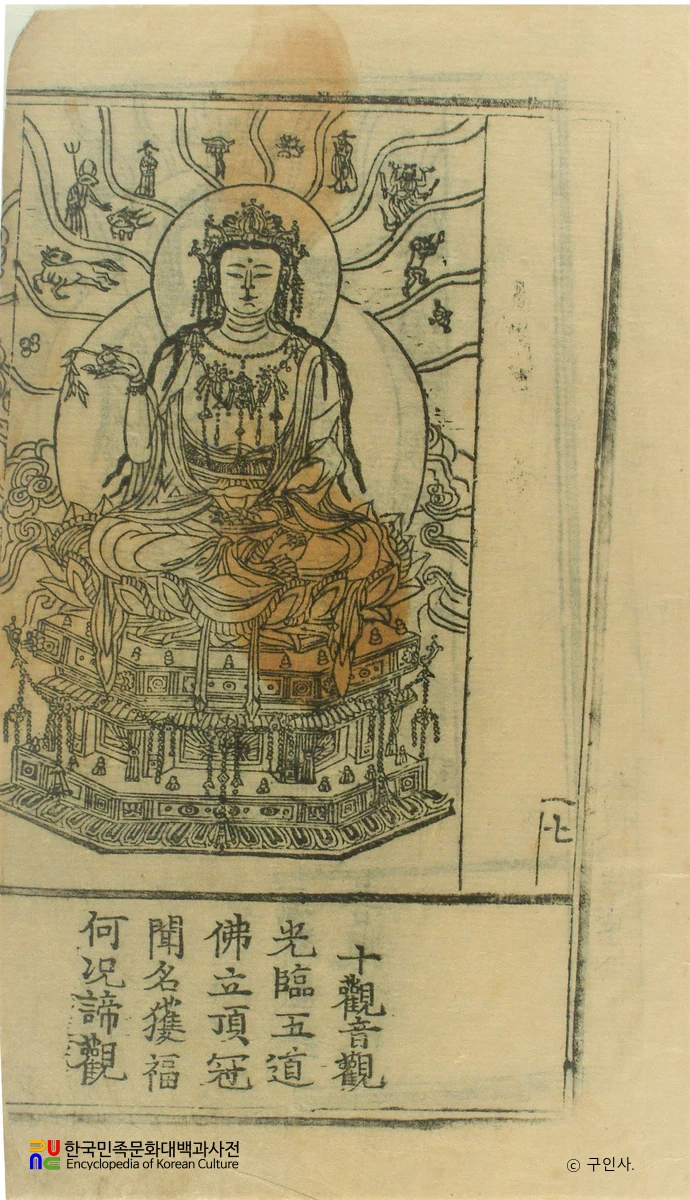 七
十觀音觀
光臨五道
佛立頂冠
聞名獲福
何况諦觀
한국민족문화대백과사전
Encyclopedia of Korean Culture
ⓒ 구인사.